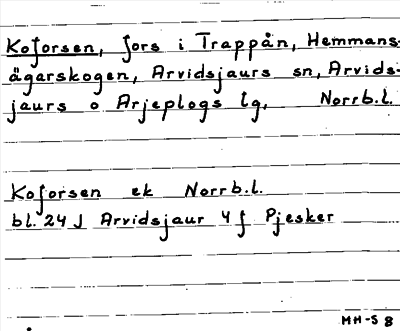 Koforsen, fors i Trappån, Hemmans-
ägarskogen, Arvidsjaurs sn, Arvids-
jaurs o Arjeplogs lg, Norrb.l.
Koforsen ek Norrb.l.
bl. 24 J Arvidsjaur 4 f Pjesker
MH-S 8